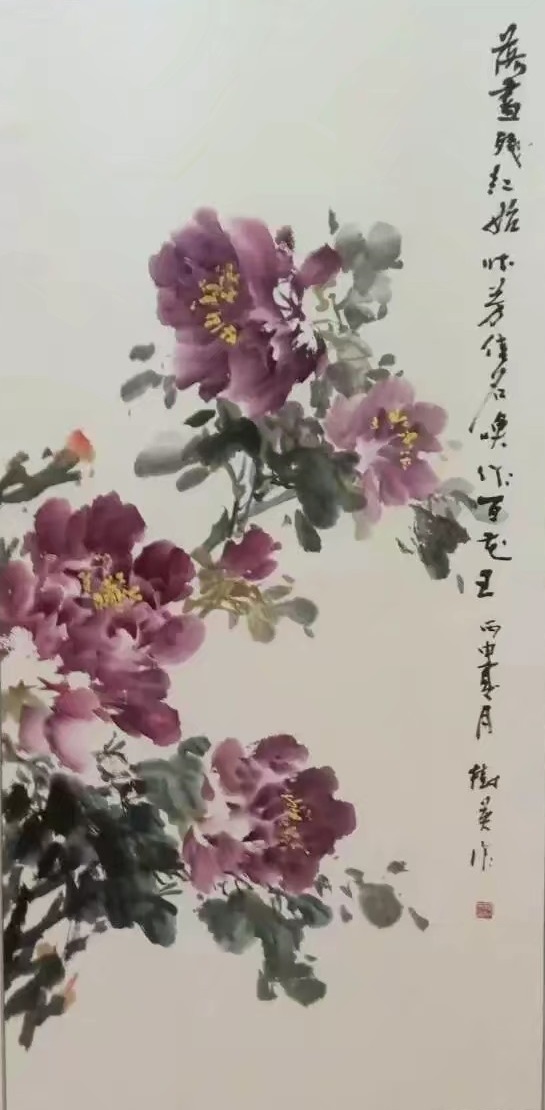 落盡残红始吐芳佳名唤作百花王 丙申夏月 樹英作